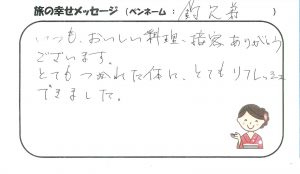 旅の幸せメッセージ (ペンネーム : 釣兄弟 )
いつも、おいしい料理、接客ありがとう
ございます。
とてもつかれた体に、とてもリフレッシュ
できました。